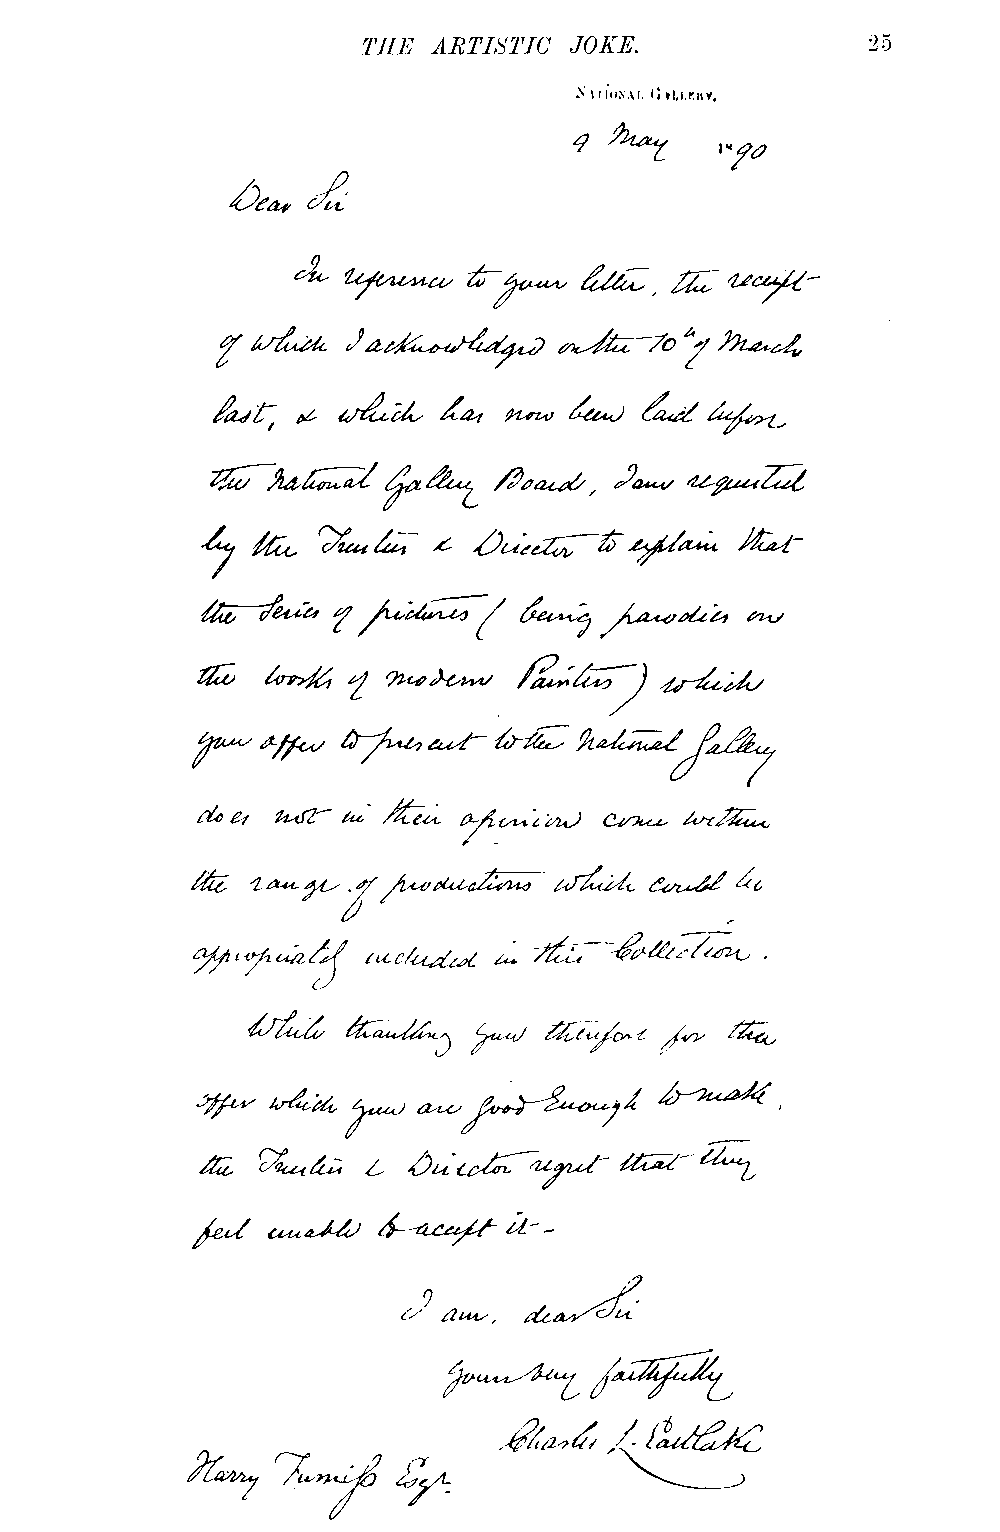 THE ARTISTIC JOKE. 25
NATIONAL GALLERY.
9 May 1890
Dear Sir
In reference to your letter, the receipt
of which I acknowledged on the 10th of March
last, & which has now been laid before
the National Gallery Board, I am requested
by the Trustees & Director to explain that
the Series of pictures (being parodies on
the works of modern Painters) which
you offer to present to the National Gallery
does not in their opinion come within
the range of productions which could be
appropriately included in this Collection.
While thanking you therefore for the
offer which you are good enough to make,
the Trustees & Director regret that they
feel unable to accept it -
I am, dear Sir
yours very faithfully
Charles L. Eastlake
Harry Furniss Esqr.